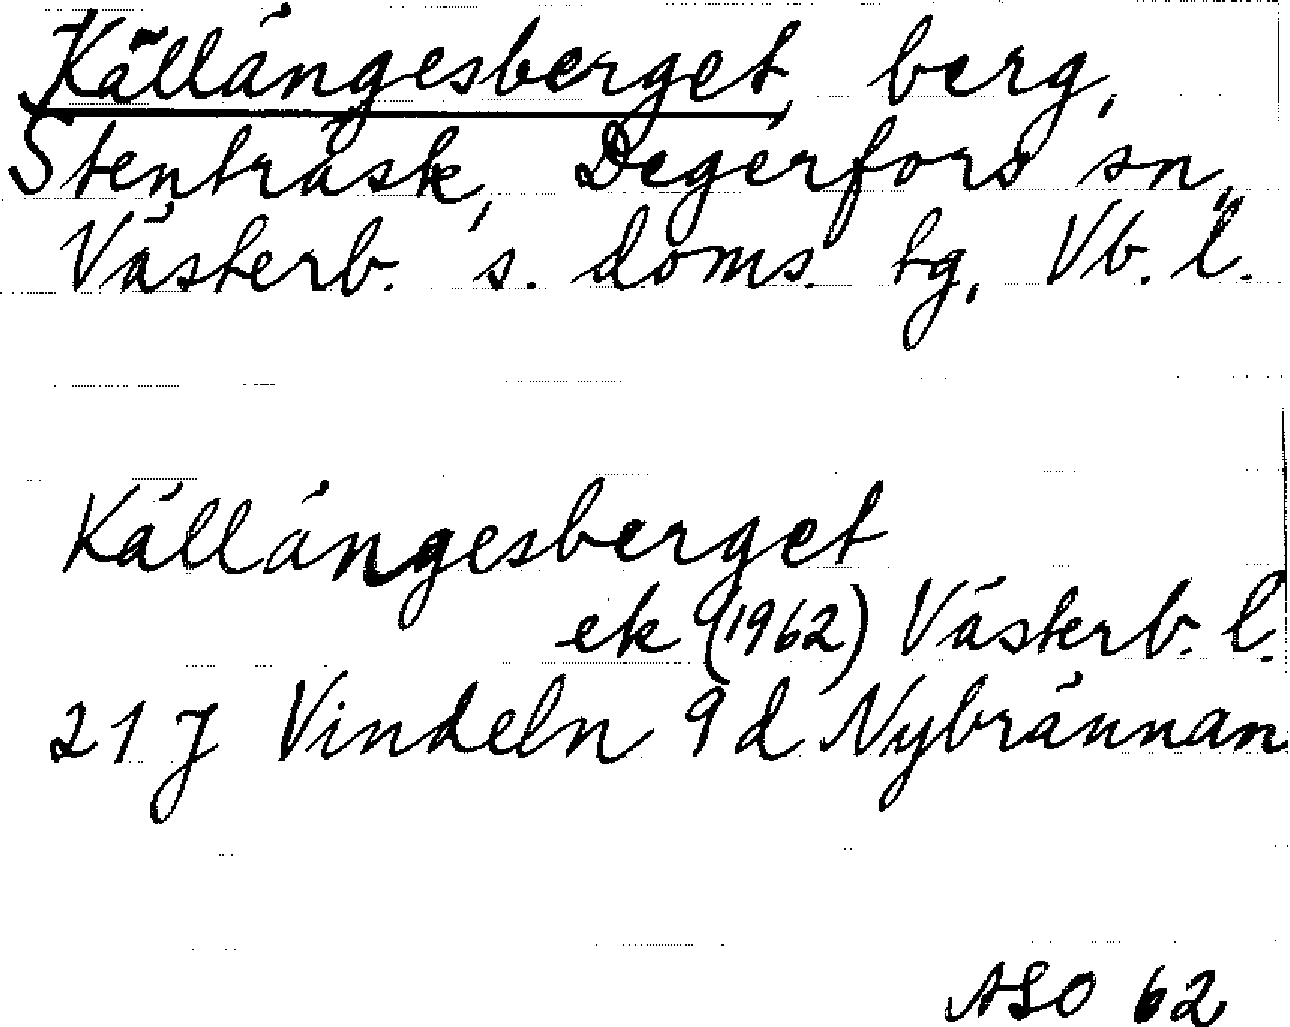 Källängesberget, berg,
Stenträsk, Degerfors sn,
Västerb. s. doms. tg, Vb. l.
Källängesberget
ek (1962) Västerb. l.
21 J Vindeln 9 d Nybrännan
ASO 62